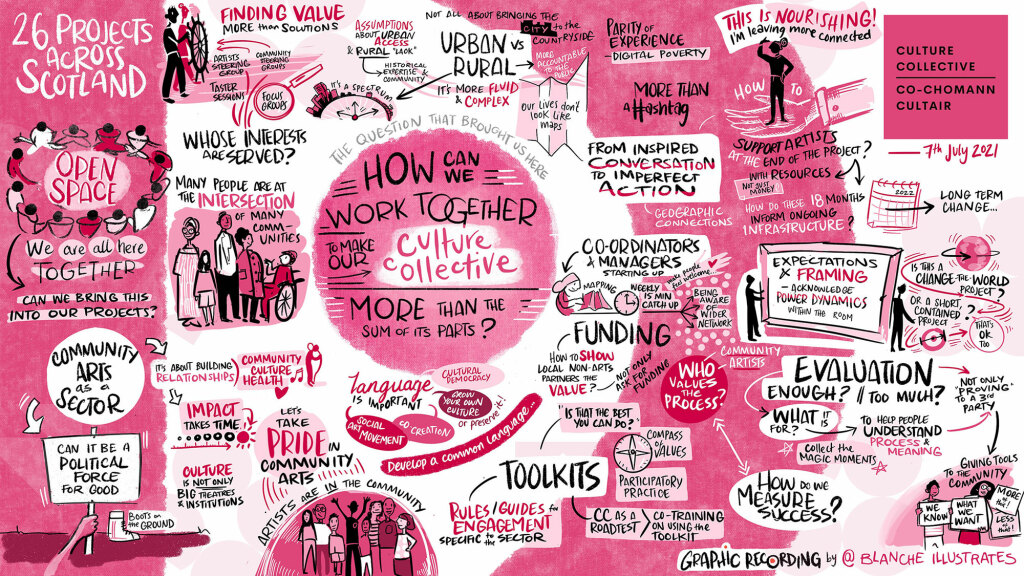 26 PROJECTS
ACROSS
SCOTLAND
FINDING VALUE
MORE THAN SOLUTIONS
ARTISTS
STEERING
GROUP
COMMUNITY
STEERING
GROUPS
TASTER
SESSIONS
FOCUS
GROUPS
WHOSE INTERESTS
ARE SERVED?
ASSUMPTIONS
ABOUT URBAN
ACCESS
& RURAL "LACK"
HISTORICAL
EXPERTISE &
COMMUNITY
IT'S A SPECTRUM
NOT ALL ABOUT BRINGING THE
CITY TO the
COUNTRYSIDE
URBAN VS
RURAL
IT'S MORE FLUID
& COMPLEX
MORE
ACCOUNTABLE
TO THE
PUBLIC
OUR LIVES DON'T
LOOK LIKE
MAPS
PARITY OF
EXPERIENCE
- DIGITAL POVERTY
MORE THAN
A #ashtag
FROM INSPIRED
CONVERSATION
TO IMPERFECT
ACTION
GEOGRAPHIC
CONNECTIONS
THIS IS NOURISHING!
I'M LEAVING MORE CONNECTED
HOW TO
SUPPORT ARTISTS
AT THE END OF THE PROJECT?
WITH RESOURCES
NOT JUST
MONEY
HOW DO THESE 18 MONTHS
INFORM ONGOING
INFRASTRUCTURE?
CULTURE
COLLECTIVE
CO-CHOMANN
CULTAIR
7th JULY 2021
2022
LONG TERM
CHANGE...
OPEN
SPACE
We are all here
TOGETHER
CAN WE BRING THIS
INTO OUR PROJECTS?
MANY PEOPLE ARE AT
THE INTERSECTION
OF MANY
COMM-
UNITIES
THE QUESTION THAT BROUGHT US HERE
HOW CAN
WE
WORK TOGETHER
TO MAKE
OUR
culture
collective
MORE THAN THE
SUM OF ITS PARTS?
CO-ORDINATORS
& MANAGERS
STARTING UP
MAPPING
WEEKLY
15 MIN
CATCH UP
make people
feel welcome...
BEING
AWARE
OF
WIDER
NETWORK
EXPECTATIONS
& FRAMING
- ACKNOWLEDGE
POWER DYNAMICS
WITHIN THE ROOM
IS THIS A
CHANGE THE WORLD
PROJECT?
OR A SHORT,
CONTAINED
PROJECT?
THAT'S
OK
TOO
FUNDING
HOW TO SHOW
LOCAL NON-ARTS
PARTNERS THE
VALUE?
NOT ONLY
ASK FOR
FUNDING
COMMUNITY
ARTISTS
WHO
VALUES THE
PROCESS?
COMMUNITY
ARTS
as a
SECTOR
CAN IT BE A
POLITICAL
FORCE
FOR GOOD
BOOTS ON
THE GROUND
IT'S ABOUT BUILDING
RELATIONSHIPS
COMMUNITY
CULTURE
HEALTH
IMPACT
TAKES TIME
CULTURE
IS NOT ONLY
BIG THEATRES
& INSTITUTIONS
LET'S
TAKE
PRIDE IN
COMMUNITY
ARTS
ARTISTS ARE IN THE COMMUNITY
language
IS IMPORTANT
CULTURAL
DEMOCRACY
GROW
YOUR OWN
CULTURE
or preserve it!
SOCIAL
ART MOVEMENT
CO CREATION
Develop a common language...
"IS THAT THE BEST
YOU CAN DO?"
COMPASS
OF
VALUES
PARTICIPATORY
PRACTICE
TOOLKITS
RULES / GUIDES for
ENGAGEMENT
SPECIFIC to the SECTOR
CC AS A
ROADTEST
CO-TRAINING
ON USING the
TOOLKIT
EVALUATION
ENOUGH? // TOO MUCH?
WHAT IS IT
FOR?
TO HELP PEOPLE
UNDERSTAND
PROCESS &
MEANING
collect the
MAGIC MOMENTS
NOT ONLY
'PROVING'
TO A 3rd
PARTY
HOW DO WE
MEASURE
SUCCESS?
GIVING TOOLS
TO THE COMMUNITY
WE
KNOW
WHAT
WE
WANT
MORE
of this!
LESS
of that!
GRAPHIC RECORDING by @ BLANCHE ILLUSTRATES